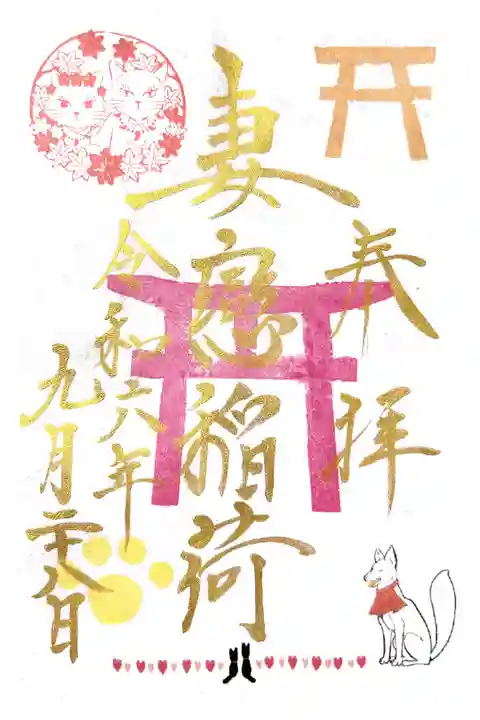 奉拝
妻 稲荷
令和六年
九月二十八日